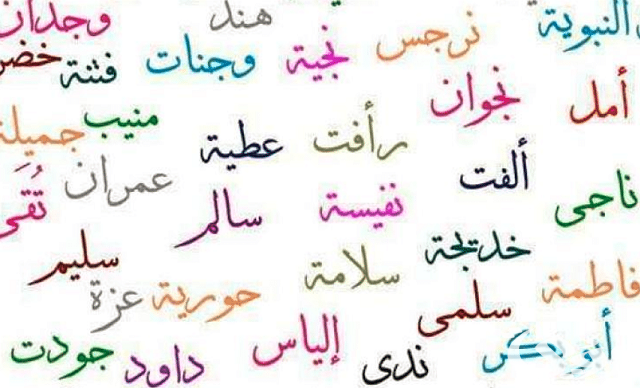 النبوية هند وجدان
نرجس نجية وجنات فتنة خضر
أمل نجوان
منيب جميلة
رأفت عطية
ألفت عمران
ناجى نفيسة سالم تُقَى
خديجة سليم
فاطمة سلامة حورية عزة
سلمى
أبو بكر إلياس جودت
ندى داود